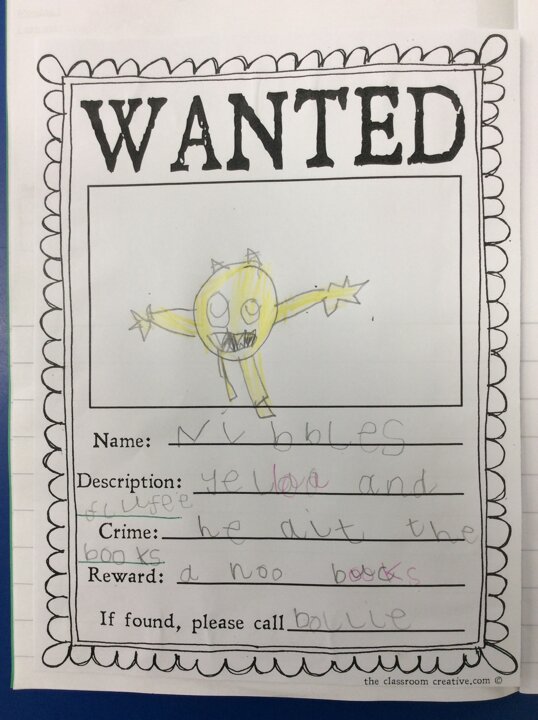 WANTED
Name: Nibbles
Description: yelloa and
flufee
Crime: he ait the
books
Reward: a noo boocks
If found, please call bollie
the classroom creative.com ©